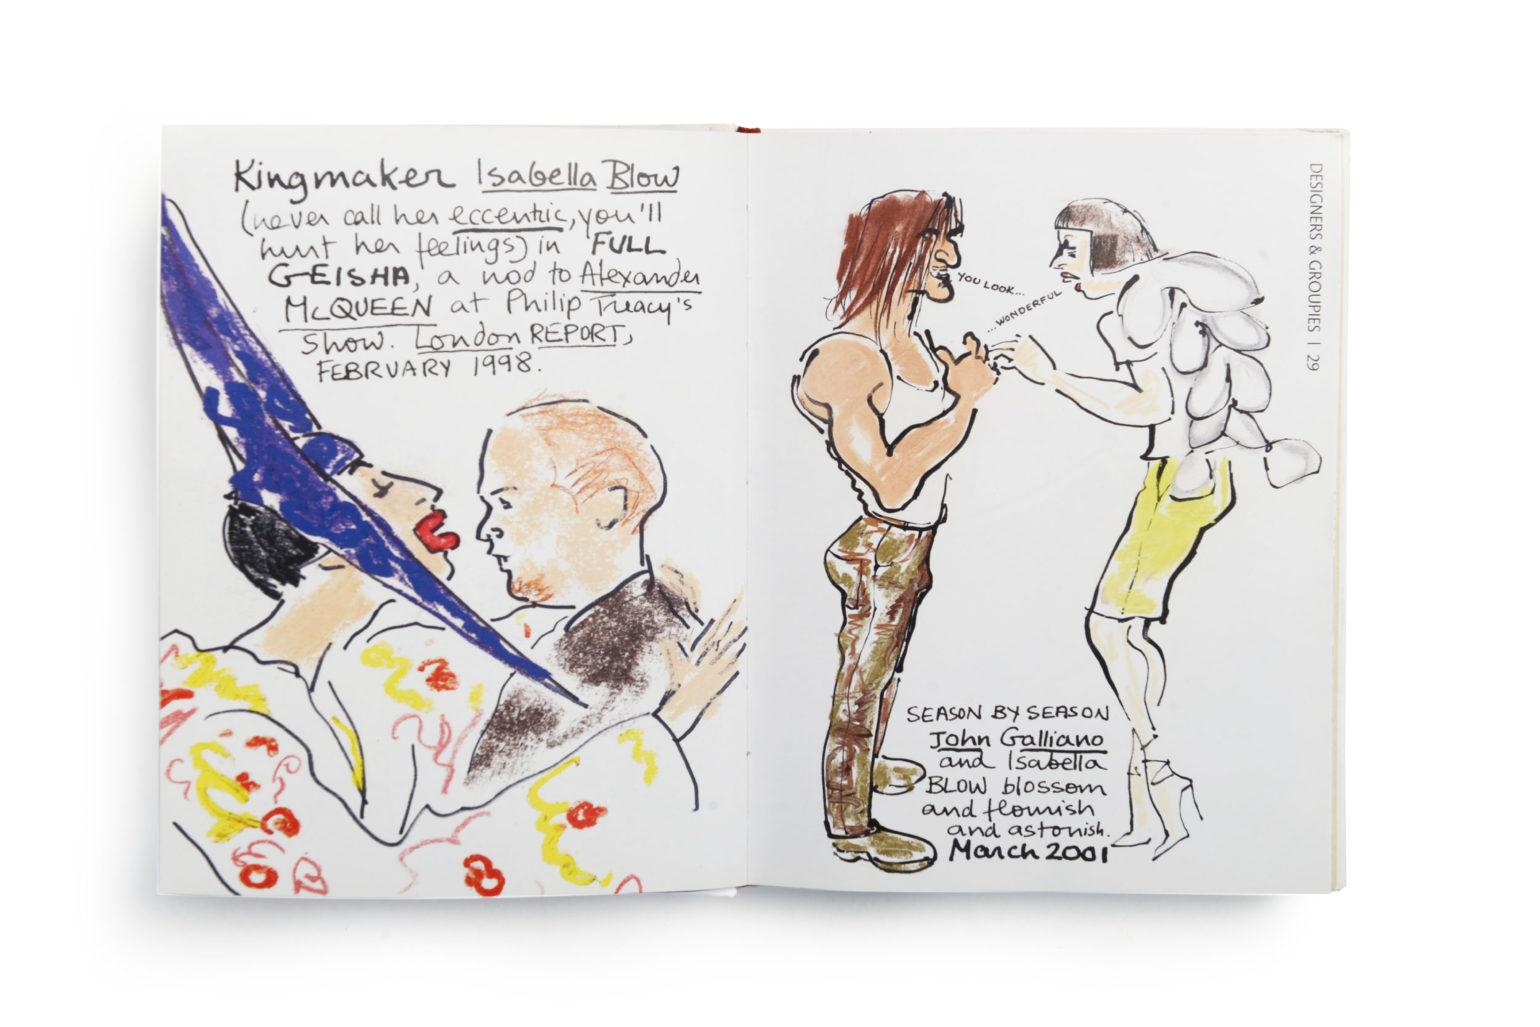 Kingmaker Isabella Blow
(never call her eccentric, you'll
hurt her feelings) in FULL
GEISHA, a nod to Alexander
McQUEEN at Philip Treacy's
show. London REPORT,
FEBRUARY 1998.
DESIGNERS & GROUPIES | 29
YOU LOOK...
...WONDERFUL
SEASON BY SEASON
John Galliano
and Isabella
BLOW blossom
and flourish
and astonish.
March 2001